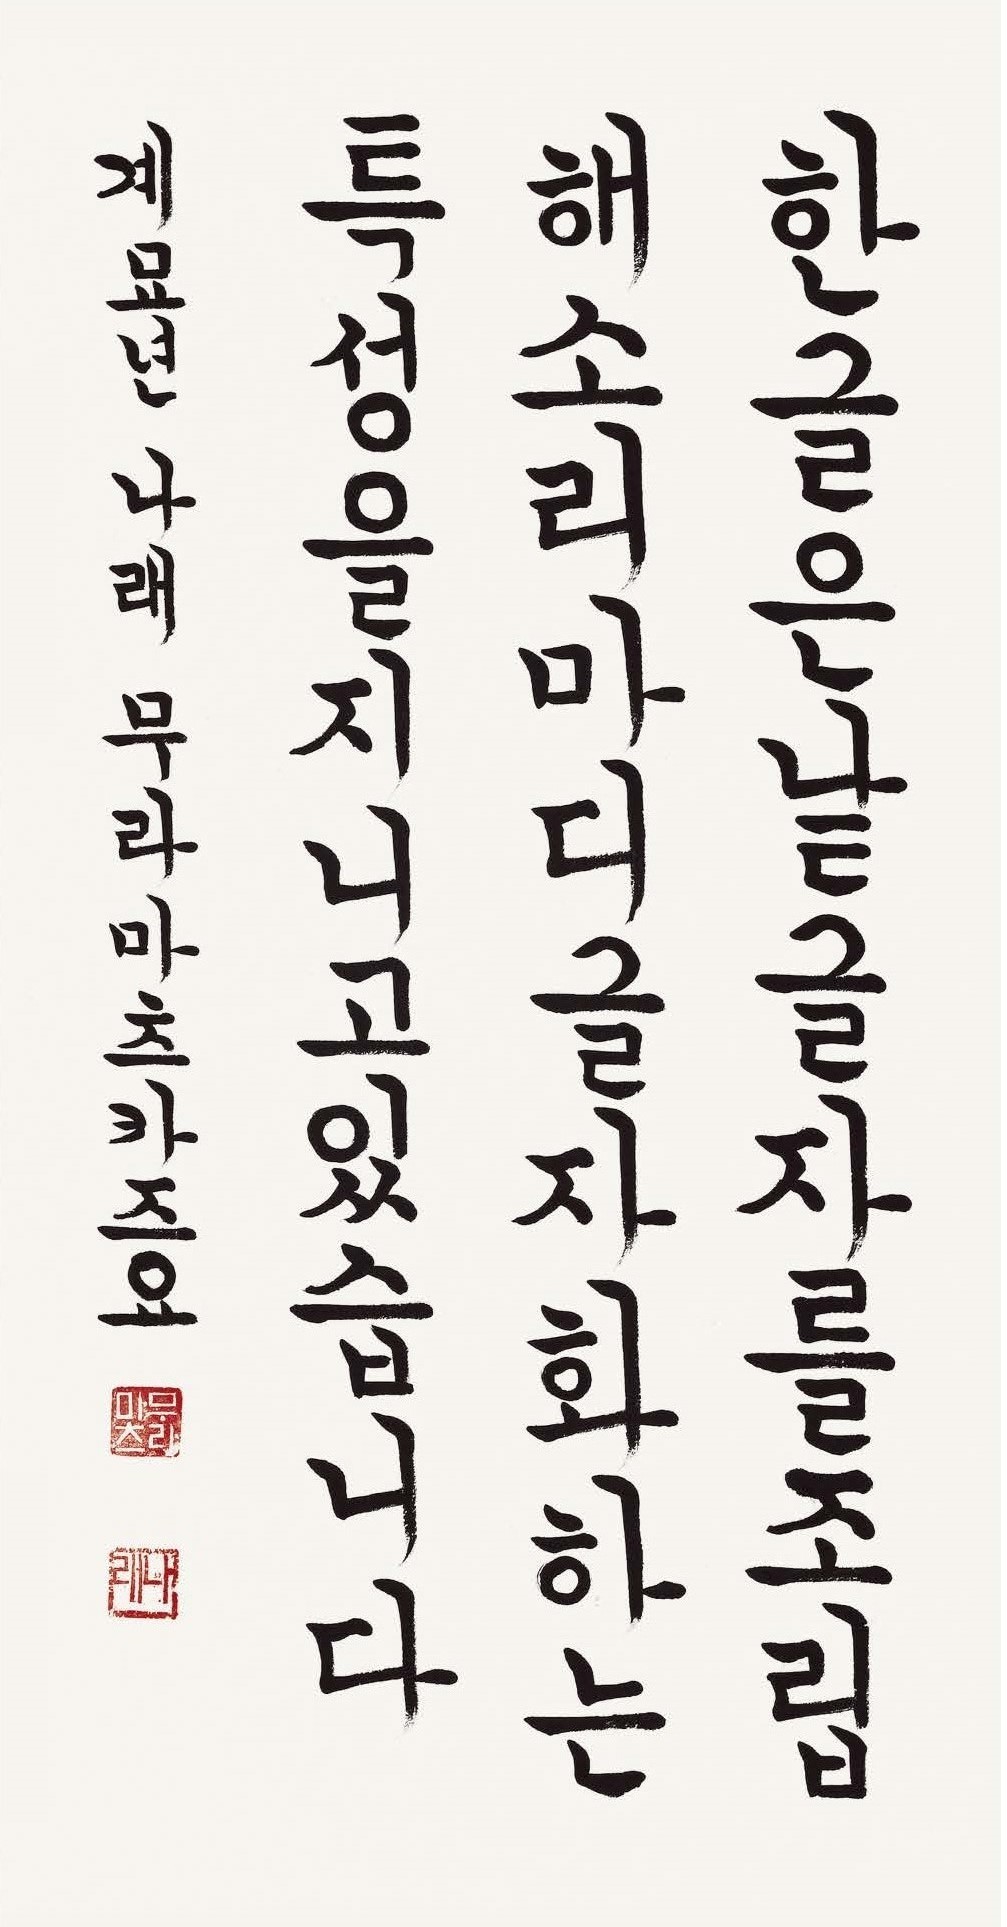 한글은낱글자를조립
해소리마디글자화하는
특성을지니고있습니다
계묘년 나래 무라마츠카즈요
무라
마츠
나래